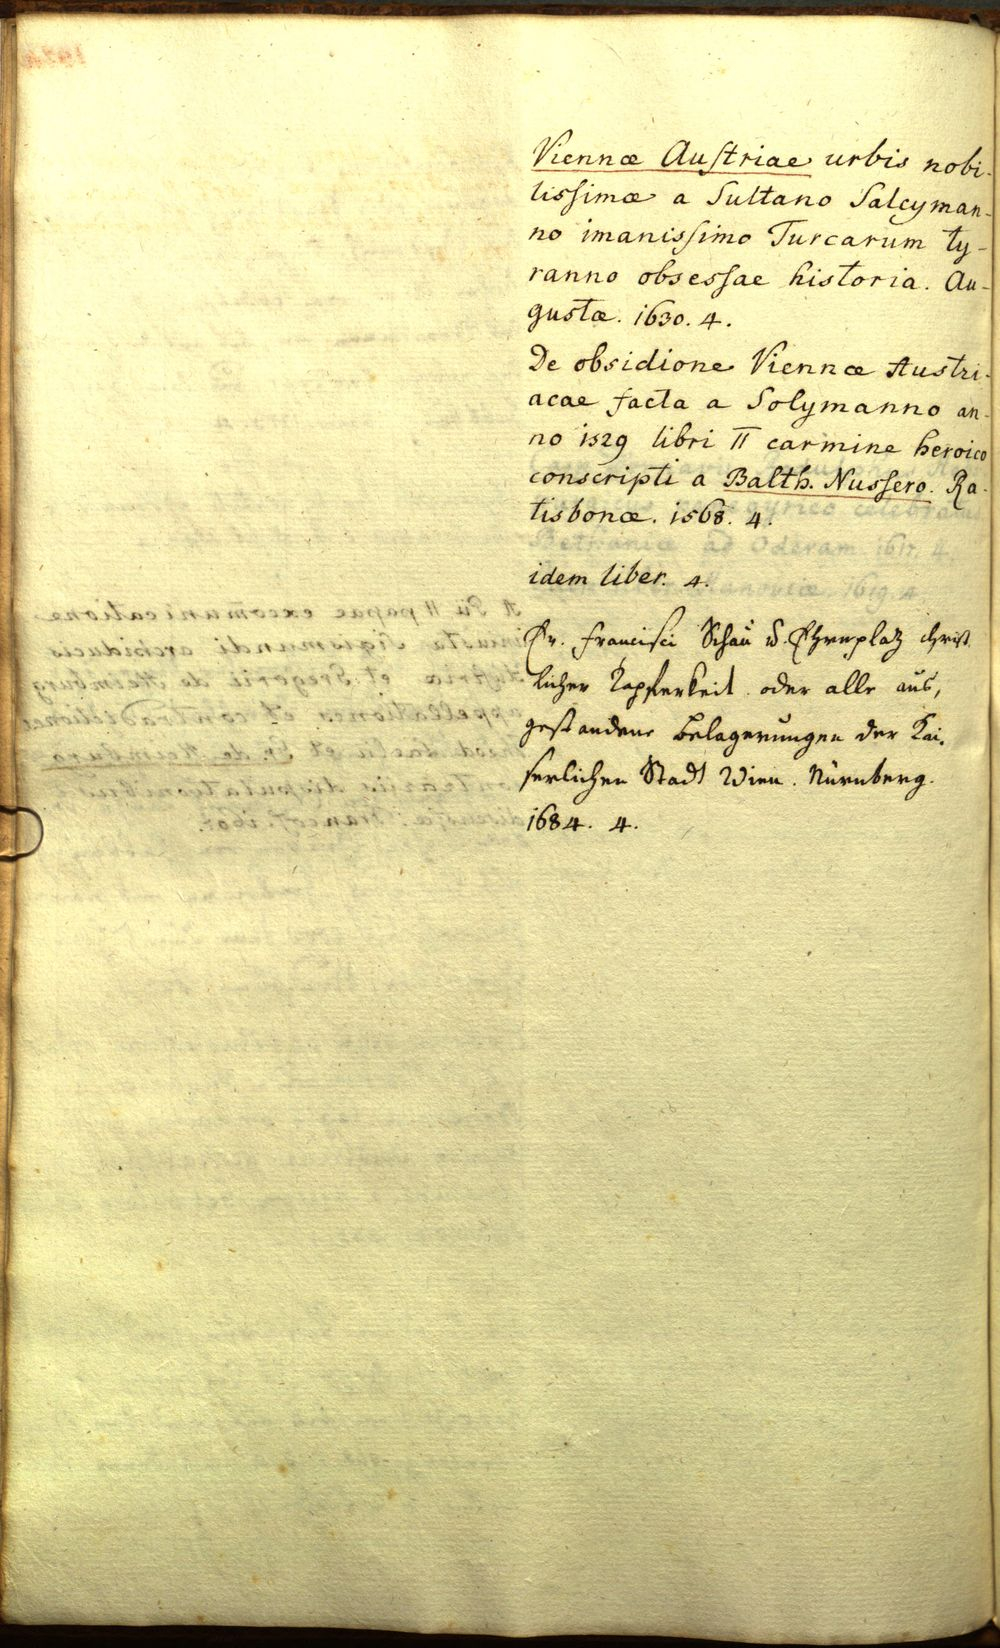 Viennæ Auſtriae urbis nobi-
lisſimæ a Sultano Saleyman-
no imanisſimo Turcarum ty-
ranno obsesſae historia. Au-
gustæ. 1630. 4.
De obsidione Viennæ Austri-
acae facta a Solymanno an-
no 1529 libri II carmine heroico
conscripti a Balth. Nusſero. Ra-
tisbonæ. 1568. 4.
idem liber. 4.
Er. Franciſci Schau u. Ehrenplatz christ
licher Tapferkeit oder alle aus,
gestandene Belagerungen der Kai,
serlichen Stadt Wien. Nürnberg.
1684. 4.